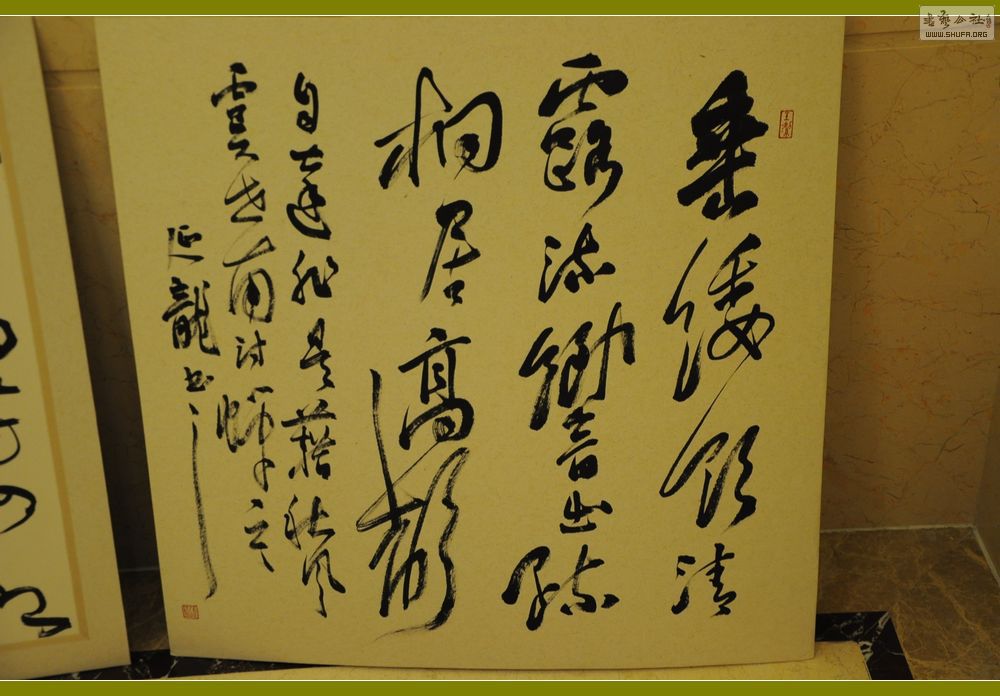 垂緌飲清
露流響出疏
桐居高聲
自遠非是藉秋風
虞世南詩蟬
延龍書
書藝公社
WWW.SHUFA.ORG